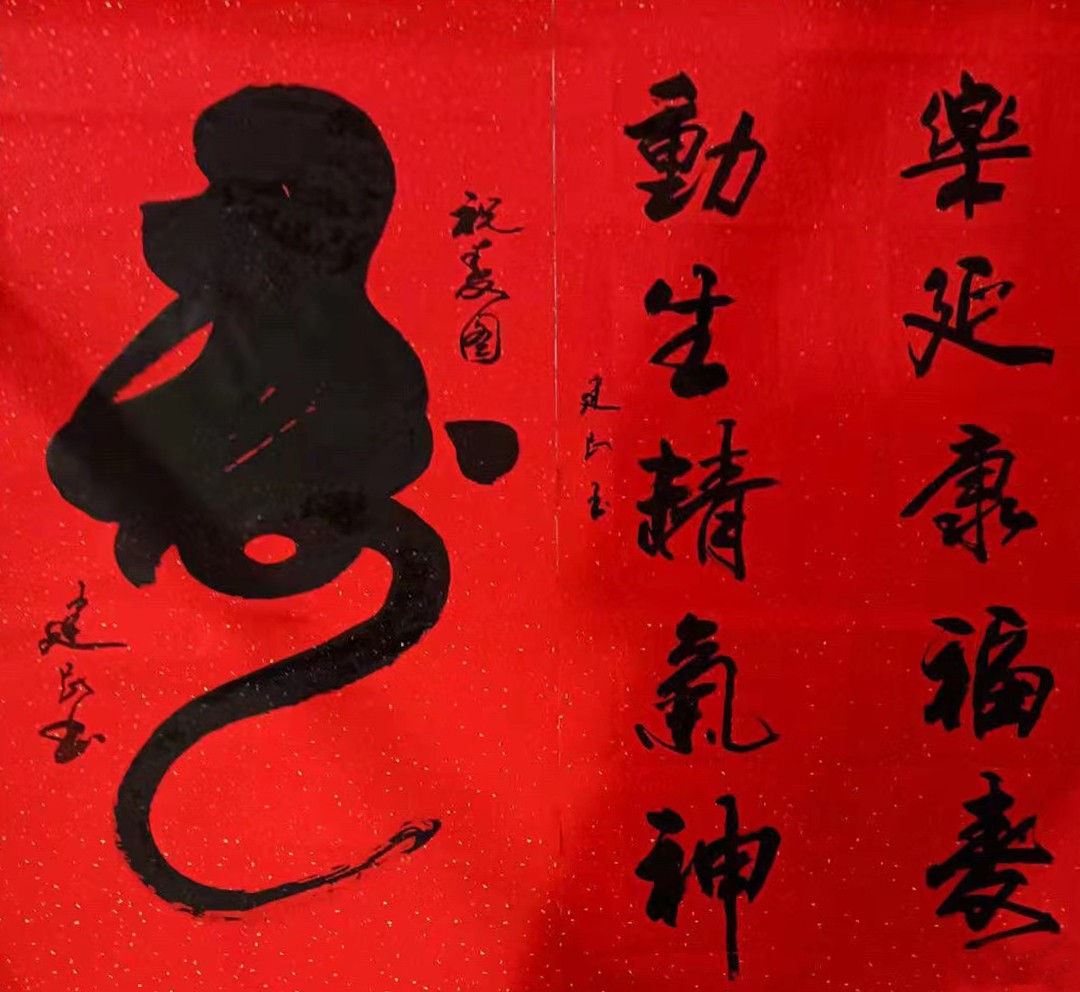 樂延康福壽
動生精氣神
建民书
祝壽图
建民书